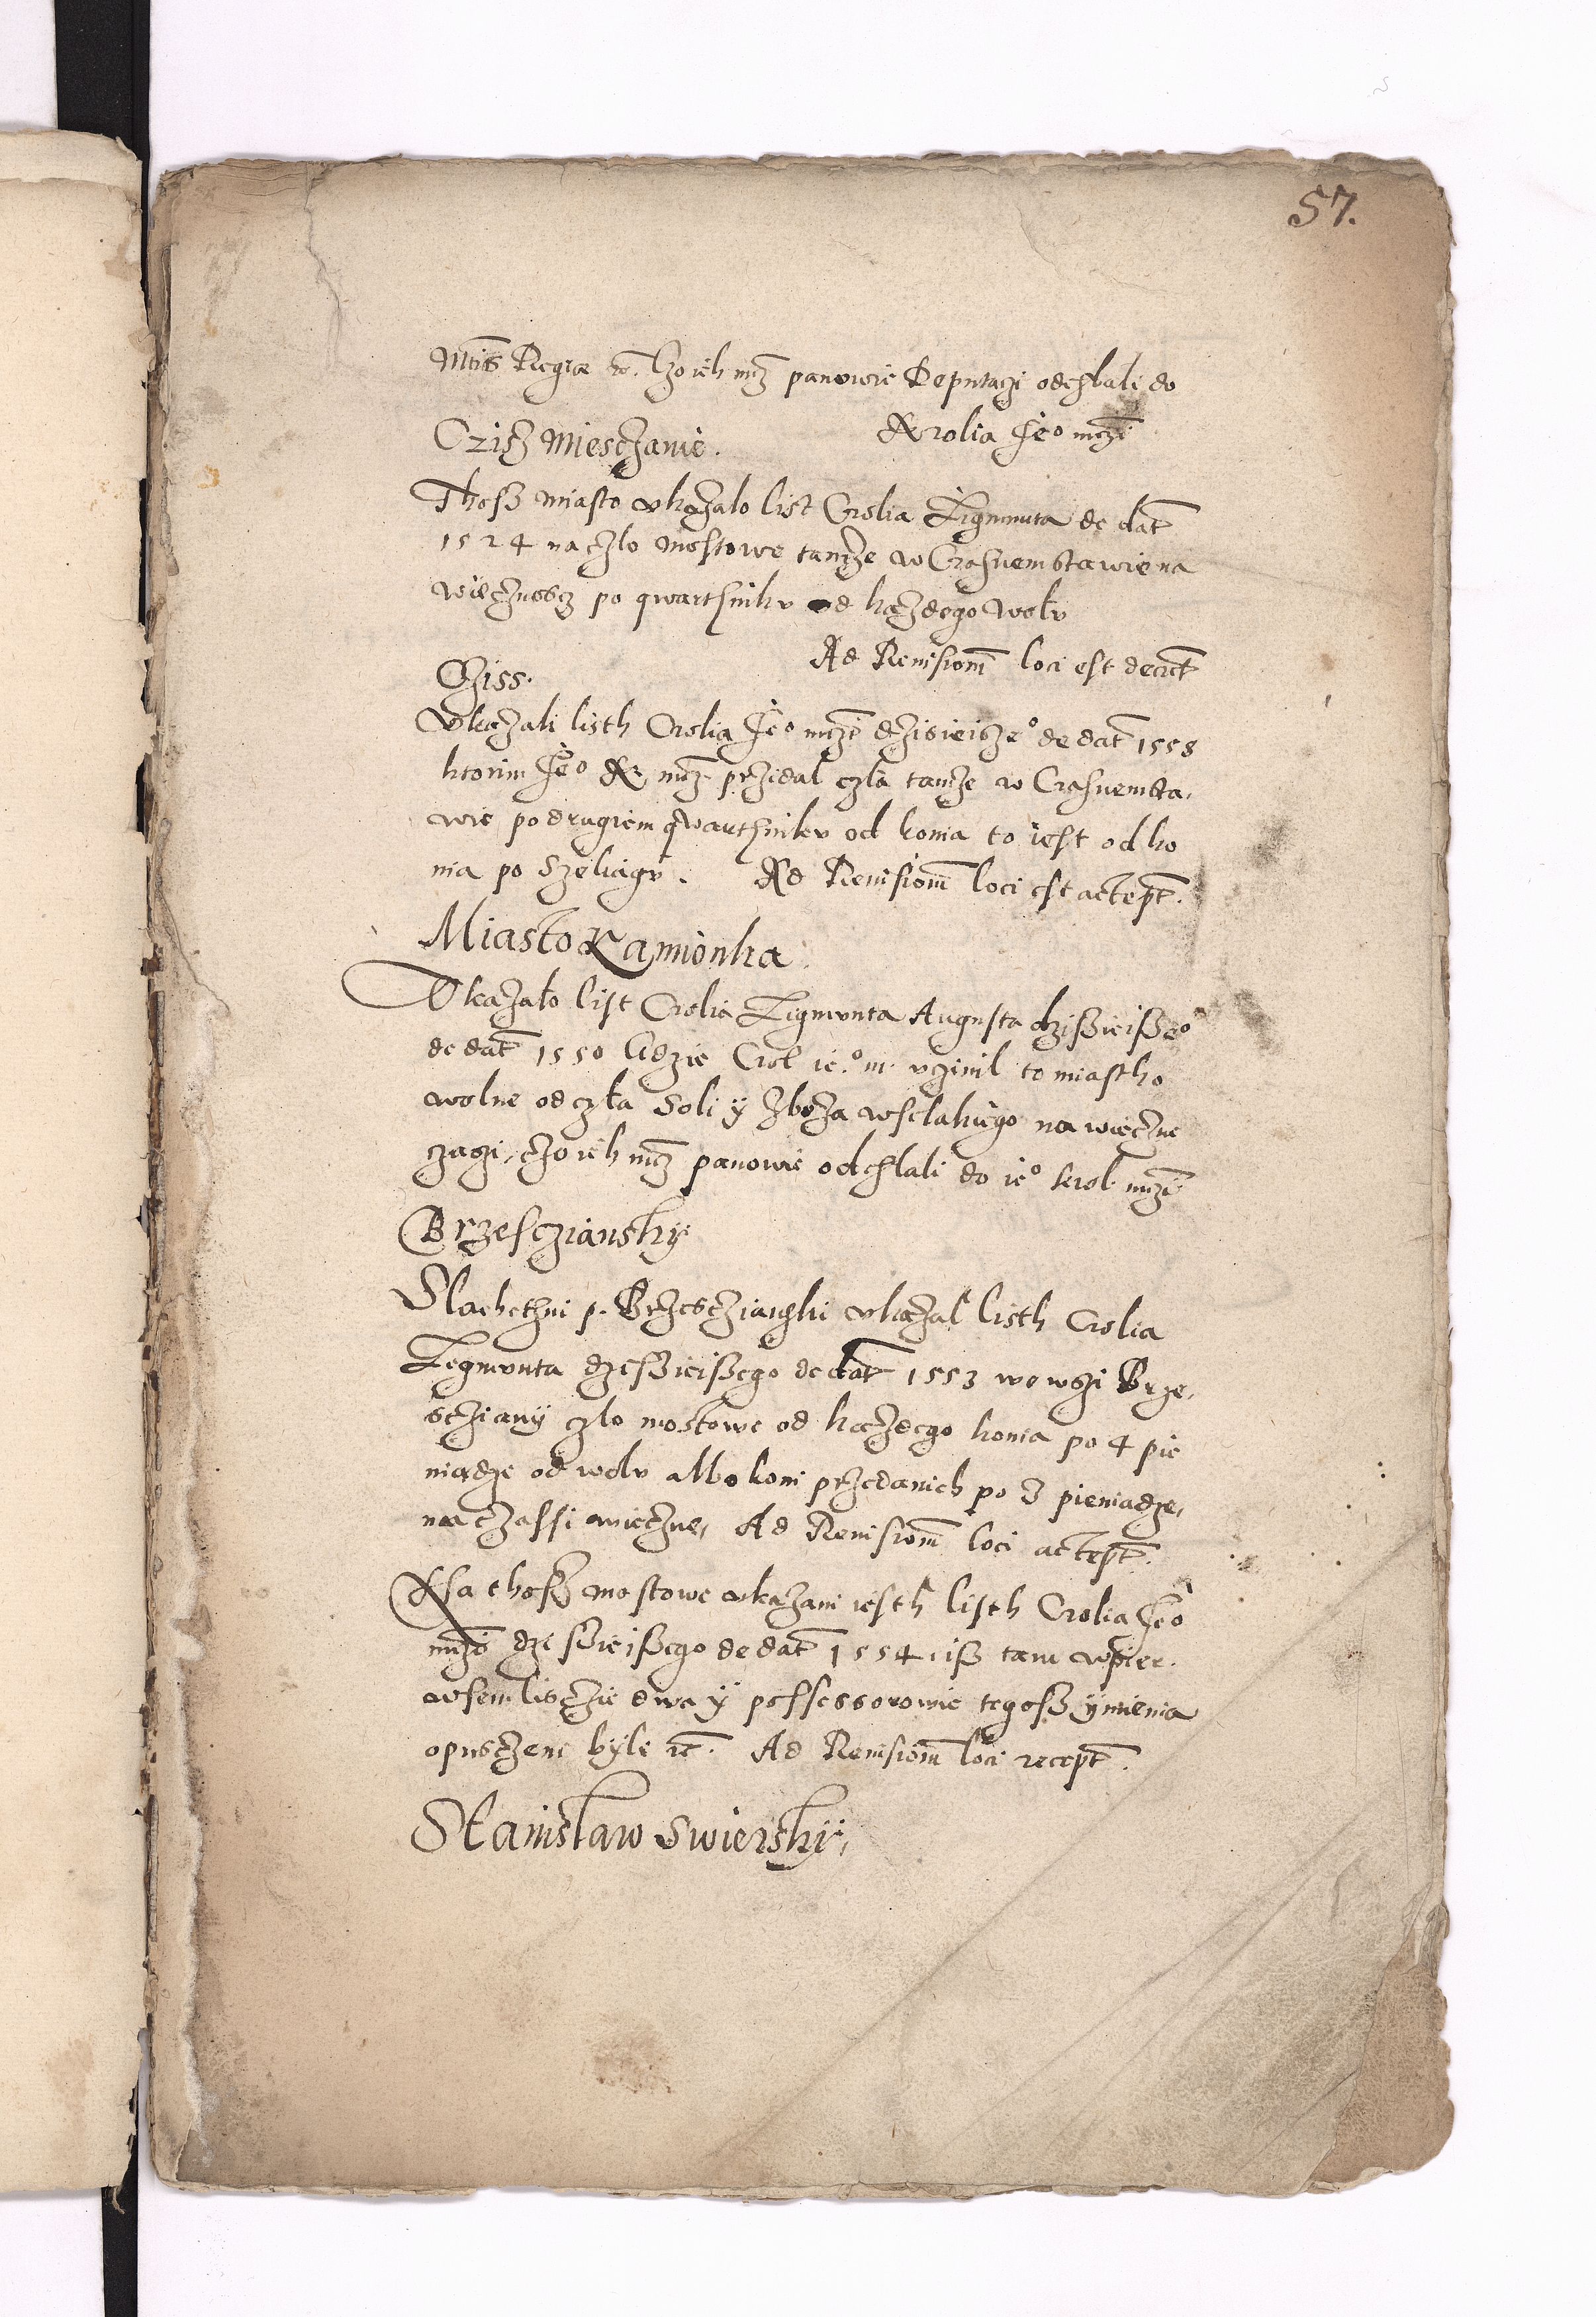 57.
Mtis Regiae etc. Czo ich mcz panowie Deputaczi odeslali do
Krolia Jeo mczi
Czisz Miesczanie.
Thosz miasto vkazalo list Crolia Zigmunta de dat
1524 na czlo mostowe tamze w Crasnemstawie na
wiecznoscz po qwarthnikv od kazdego wolv
Ad Reuisionem loci est decret
Cziss.
Vkazali listh Crolia Jeo mczi dzisieisze° de dat 1558
ktorim Jeo K mcz przidal czla tamze w Crasnemsta,
wie po drugiem qwarthnikv od konia to iest od ko
nia po Szeliągv. Ad Reuisionem loci est accept.
Miasto Kamionka.
Vkazało list Crolia Zigmvnta Augusta dzisieisze°
de dat 1550 Gdzie Crol ie° m. vczinil to miastho
wolne od czla Soli ÿ Zboza wselakiego na wieczne
czaszi, czo ich mcz panowie odeslali do ie° krol. mczi
Brzescziansky
Slachethni p. Brzesczianski vkazal listh Crolia
Zegmvnta dzesieiszego de dat 1553 we wszi Brze,
scziany czlo mostowe od kazdego konia po 4 pie
niądze od wolv albo koni przedanich po 3 pieniadze,
na czassi wieczne, Ad Reuisionem loci accept.
Na thosz mostowe vkazani iesth listh Crolia Jeo
mczi dzesieiszego de dat 1554 isz tam w pier.
wsem lisczie dwa ÿ possessorowie tegosz ymienia
opusczeni byli etc. Ad Reuisionem loci recept.
Stanisław Swiersky,